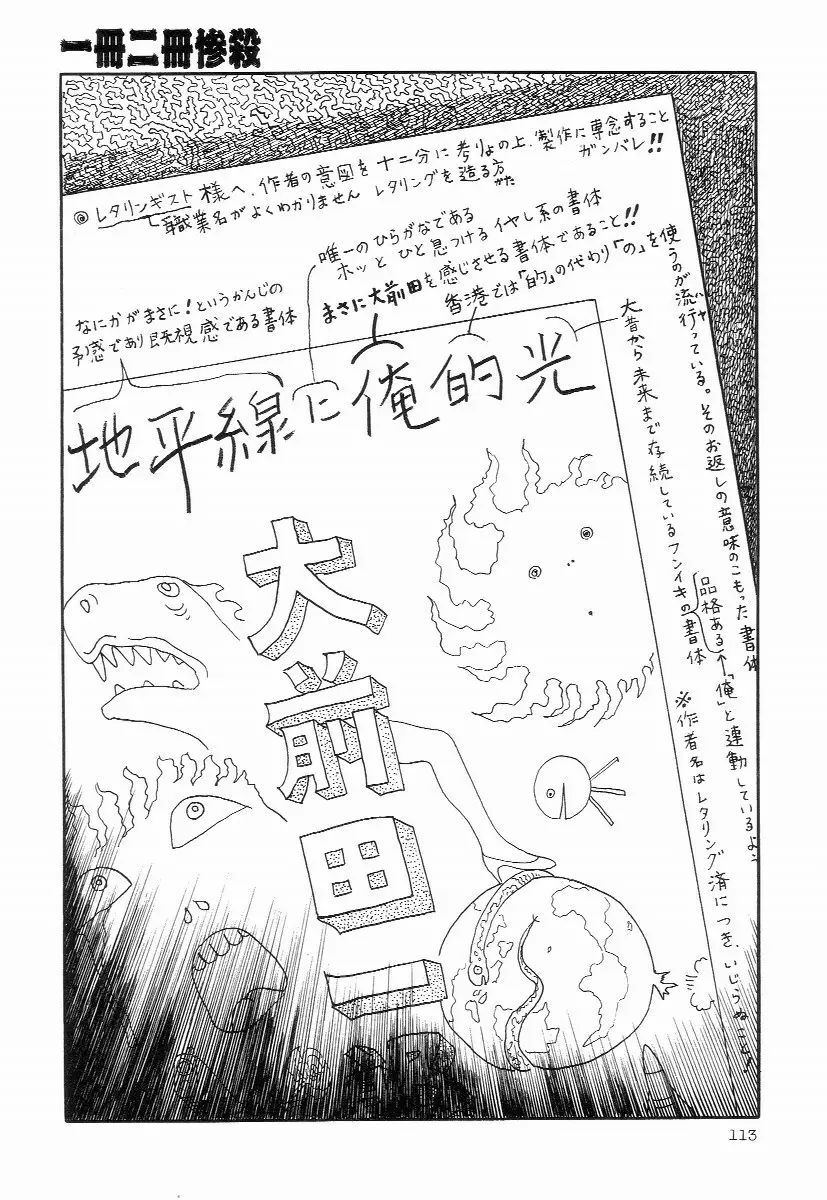 一冊二冊惨殺
◎レタリンギスト様へ、作者の意図を十二分に考りょの上、製作に専念すること
ガンバレ!!
職業名がよくわかりません レタリングを造る方
かた
唯一のひらがなである
ホッとひと息つけるイヤし系の書体
まさに大前田を感じさせる書体であること!!
香港では「的」の代わり「の」を使うのが流行っている。そのお返しの意味のこもった書体
ハヤ
なにかがまさに!というかんじの
予感であり既視感である書体
大昔から未来まで存続しているフンイキの書体
品格ある←「俺」と連動しているよ
※作者名はレタリング済につき、いじらぬこと
地平線に俺的光
大前田二
113